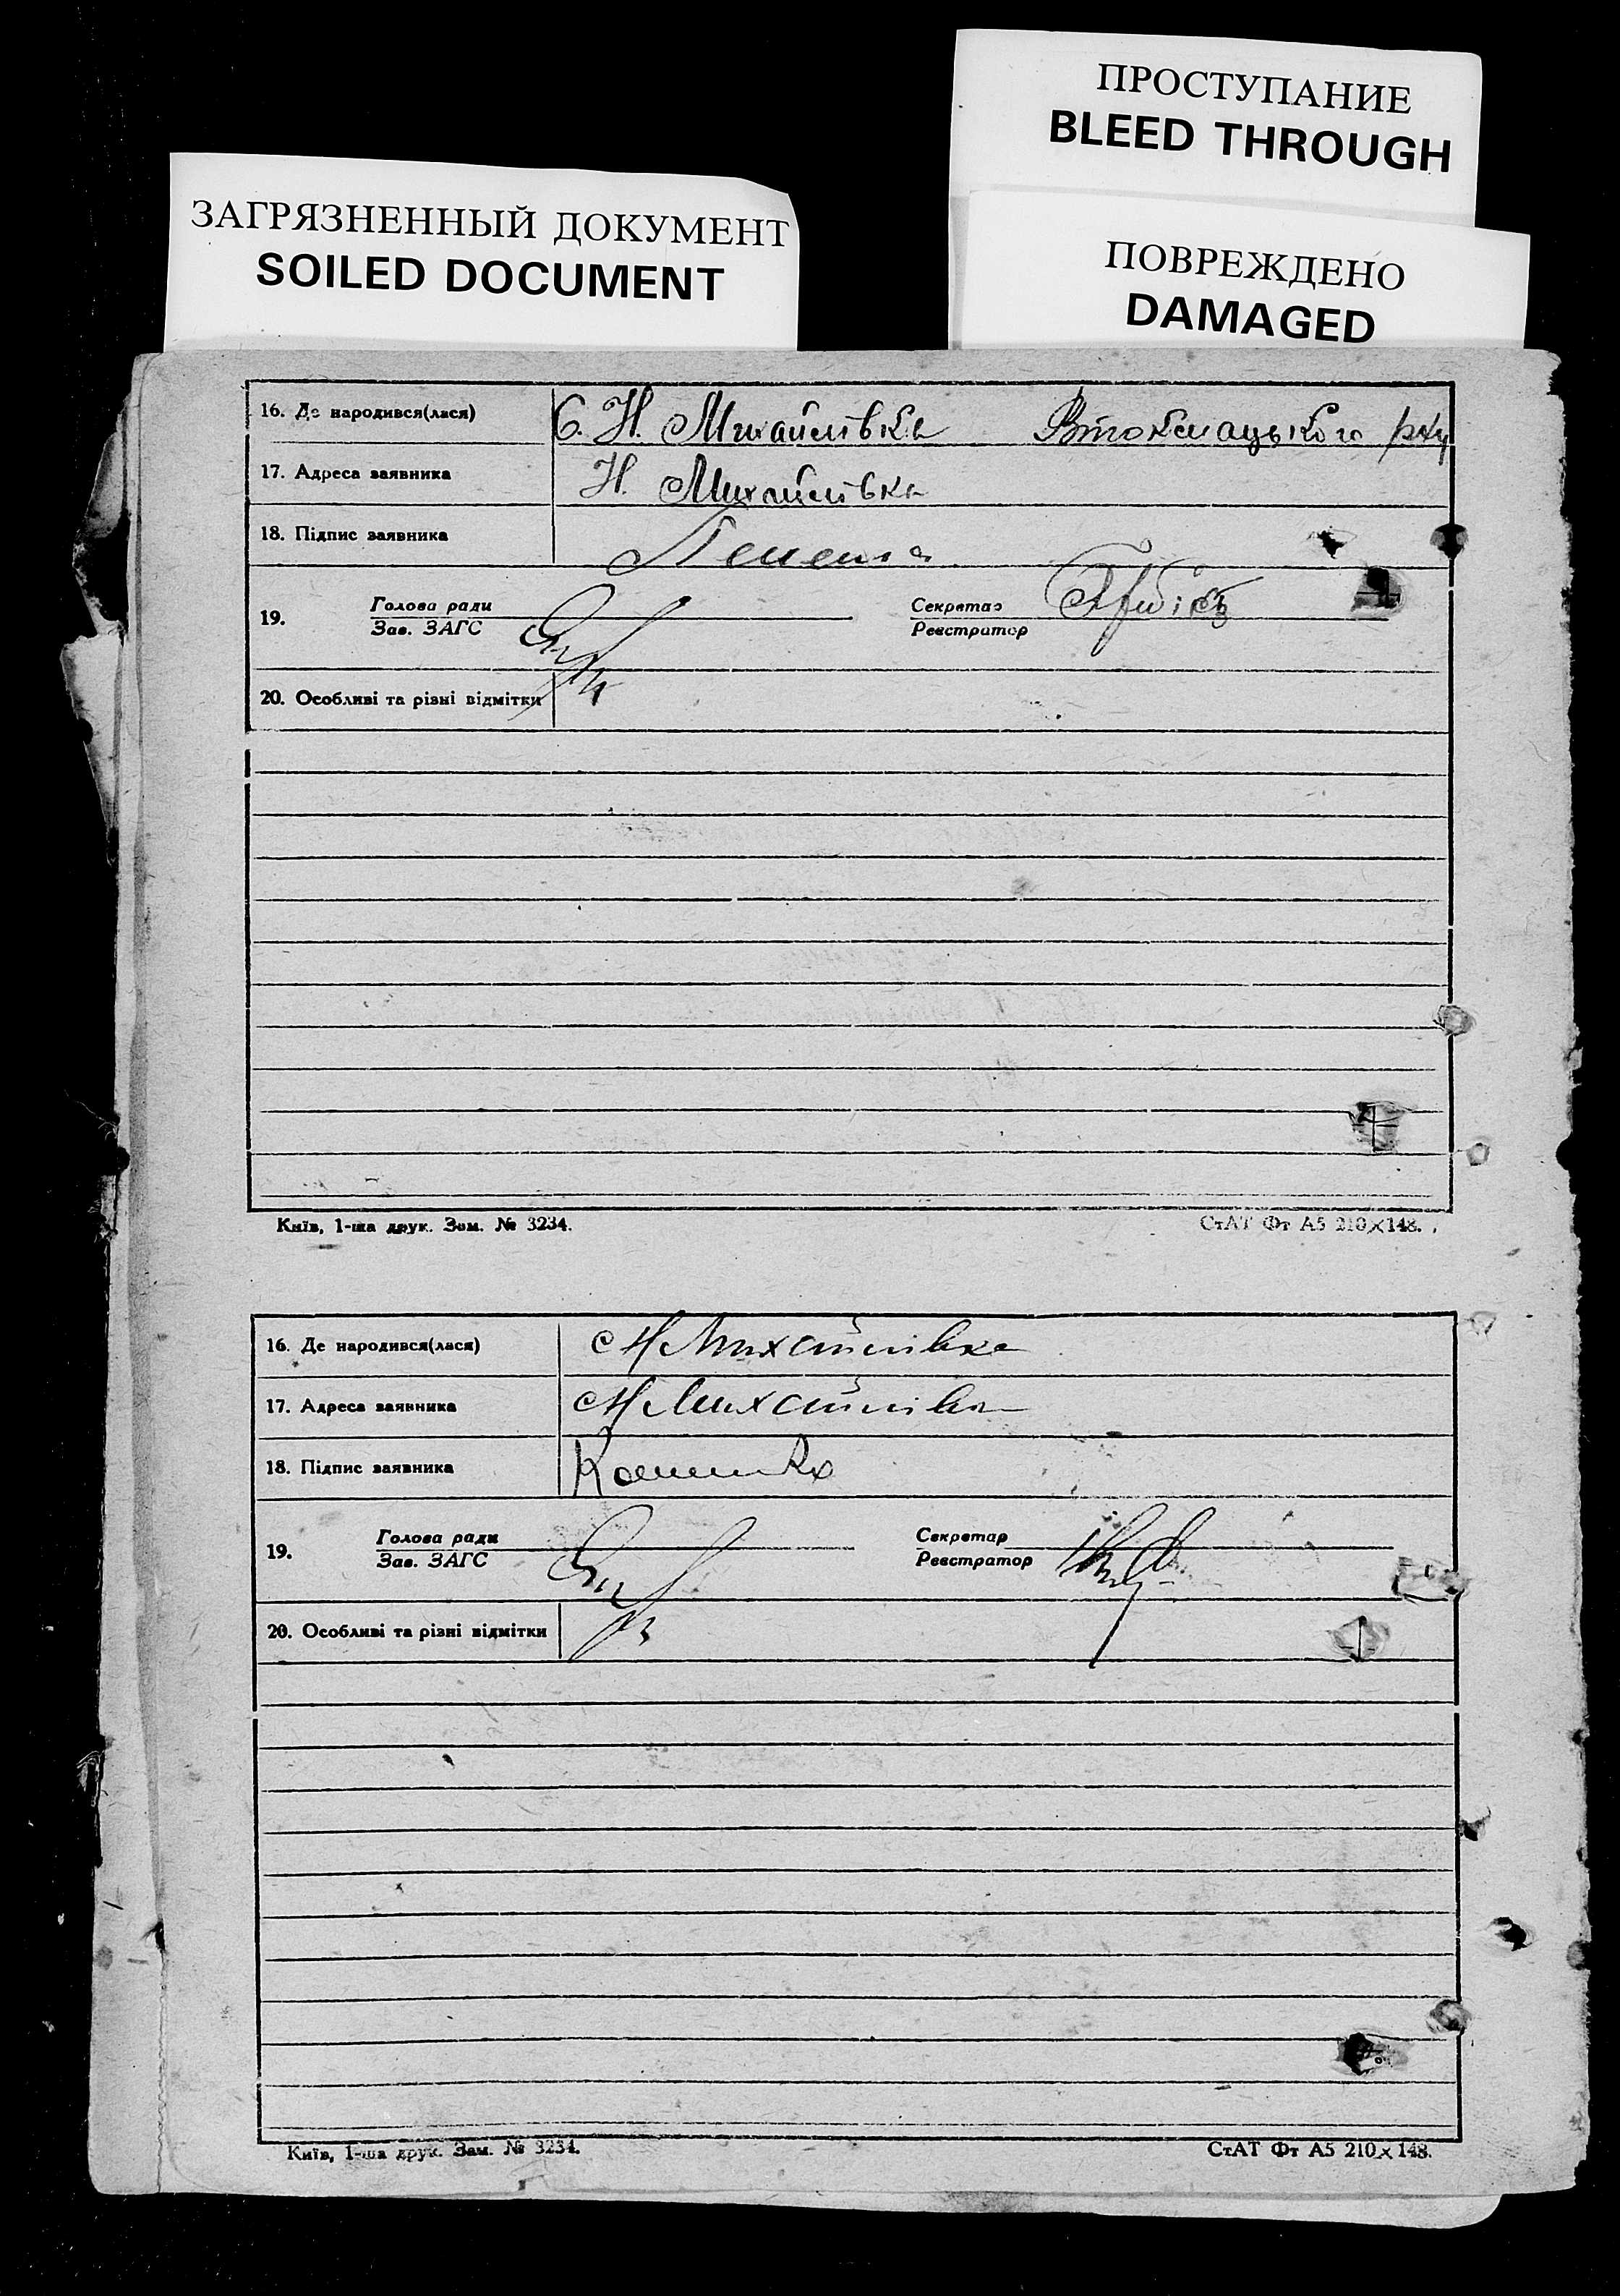 ПРОСТУПАНИЕ
BLEED THROUGH
ЗАГРЯЗНЕННЫЙ ДОКУМЕНТ
SOILED DOCUMENT
ПОВРЕЖДЕНО
DAMAGED
16. Де народився(лася) С. Н. Михайлівка Втокмацького р-ну
17. Адреса заявника Н. Михайлівка
18. Підпис заявника
19. Голова ради Секретар
Зав. ЗАГС Реєстратор
20. Особливі та різні відмітки
Київ, 1-ша друк. Зам. № 3234. СтАТ Фт А5 210×148.
16. Де народився(лася) Н Михайлівка
17. Адреса заявника Н Михайлівка
18. Підпис заявника
19. Голова ради Секретар
Зав. ЗАГС Реєстратор
20. Особливі та різні відмітки
Київ, 1-ша друк. Зам. № 3234. СтАТ Фт А5 210×148.